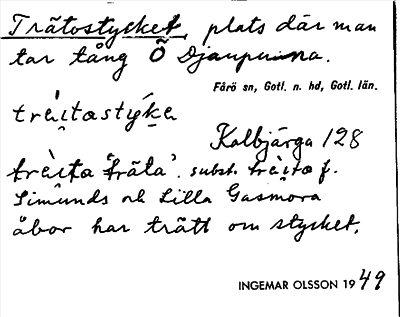 Trätostycket, plats där man
tar tång Ö Djaupunna.
Fårö sn, Gotl. n. hd, Gotl. län.
träitostyke
Kalbjärga 128
träita "träta". subst. träito f.
Simunds och Lilla Gasmora
åbor har trätt om stycket.
INGEMAR OLSSON 1949